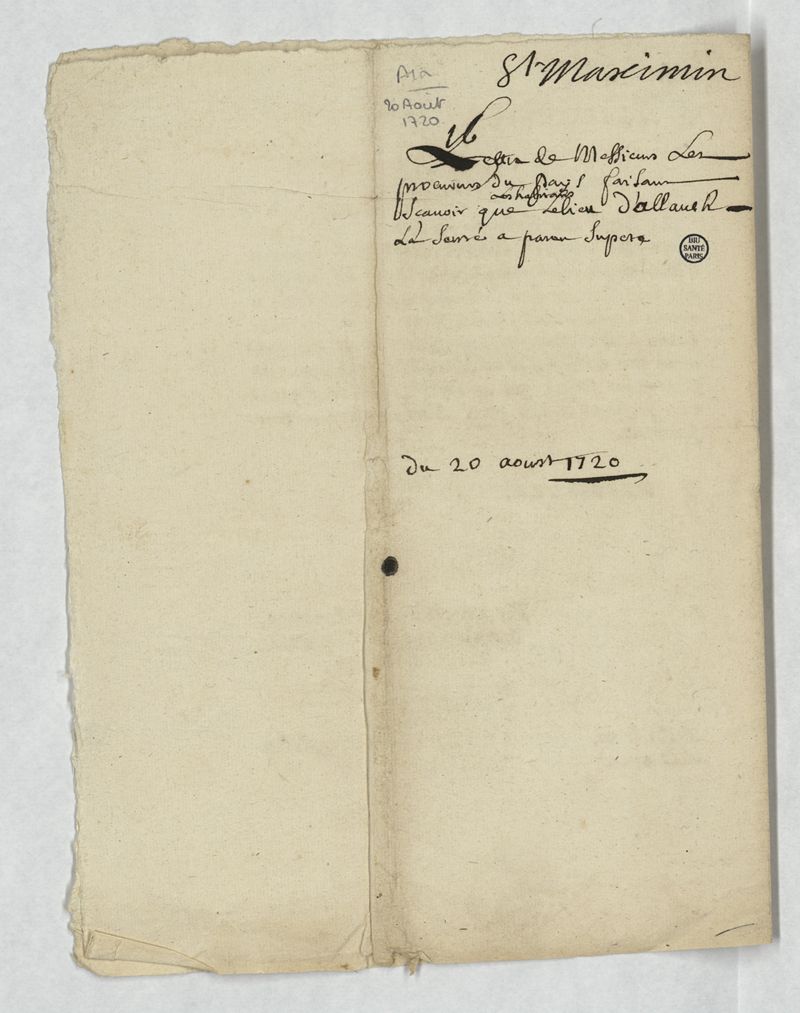 St Maximin
Aix
20 Août
1720
16
Lettre de Messieurs Les
procureurs du pays faisant
les habitants
Scavoir que Le lieu d'allauch
La
BIU
SANTÉ
PARIS
du 20 aoust 1720